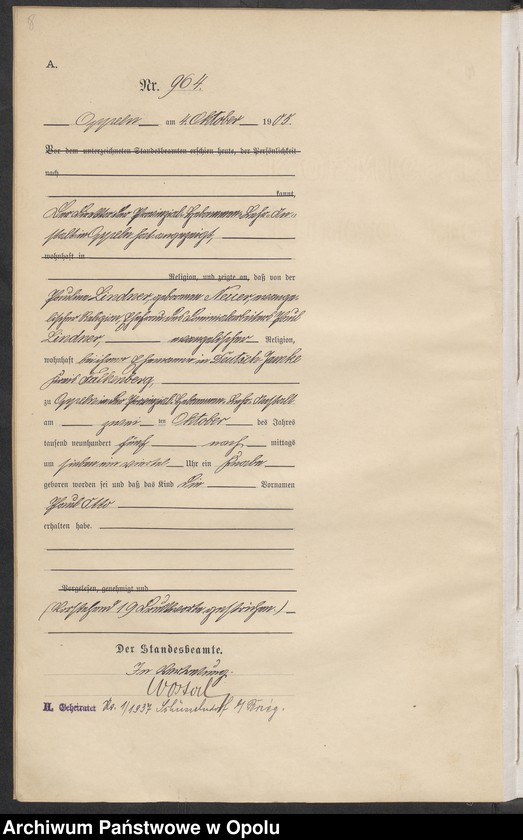 8
A.
Nr. 964.
Oppeln am 4. Oktober 1905.
Vor dem unterzeichneten Standesbeamten erschien heute, der Persönlichkeit
nach
kannt,
Der Direktor der Provinzial-Hebammen-Lehr-An-
stalt in Oppeln hat angezeigt,
wohnhaft in
Religion, und zeigte an, daß von der
Pauline Lindner, geborenen Neuer, evange-
lischer Religion, Ehefrau des Paul
Lindner, evangelischer Religion,
wohnhaft bei ihrem Ehemanne in Deutsch Jamke
Kreis Falkenberg,
zu Oppeln in der Provinzial-Hebammen-Lehr-Anstalt
am zwei ten Oktober des Jahres
tausend neunhundert fünf nach mittags
um sieben ein viertel Uhr ein Knabe
geboren worden sei und daß das Kind die Vornamen
Paul Otto
erhalten habe.
Vorgelesen, genehmigt und
(Vorstehend 19 Druckworte gestrichen.)
Der Standesbeamte.
In Vertretung.
H. Geheiratet Nr. 1/1937 Schünsdorf Brieg.
Archiwum Państwowe w Opolu